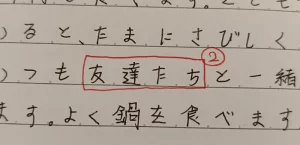 ると、たまにさびしく
つも友達たち②と一緒
ます。よく鍋を食べます